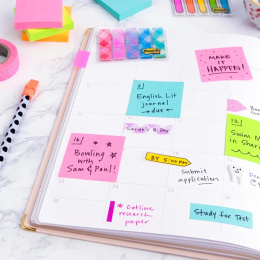 MAKE
IT
HAPPEN!
English Lit
journal
due
Sarah's B-Day
Swim M
in Shar
Bowling
with
Sam & Paul!
BY 5:00 PM
Submit
application
* Outline
research
paper
Study for Test